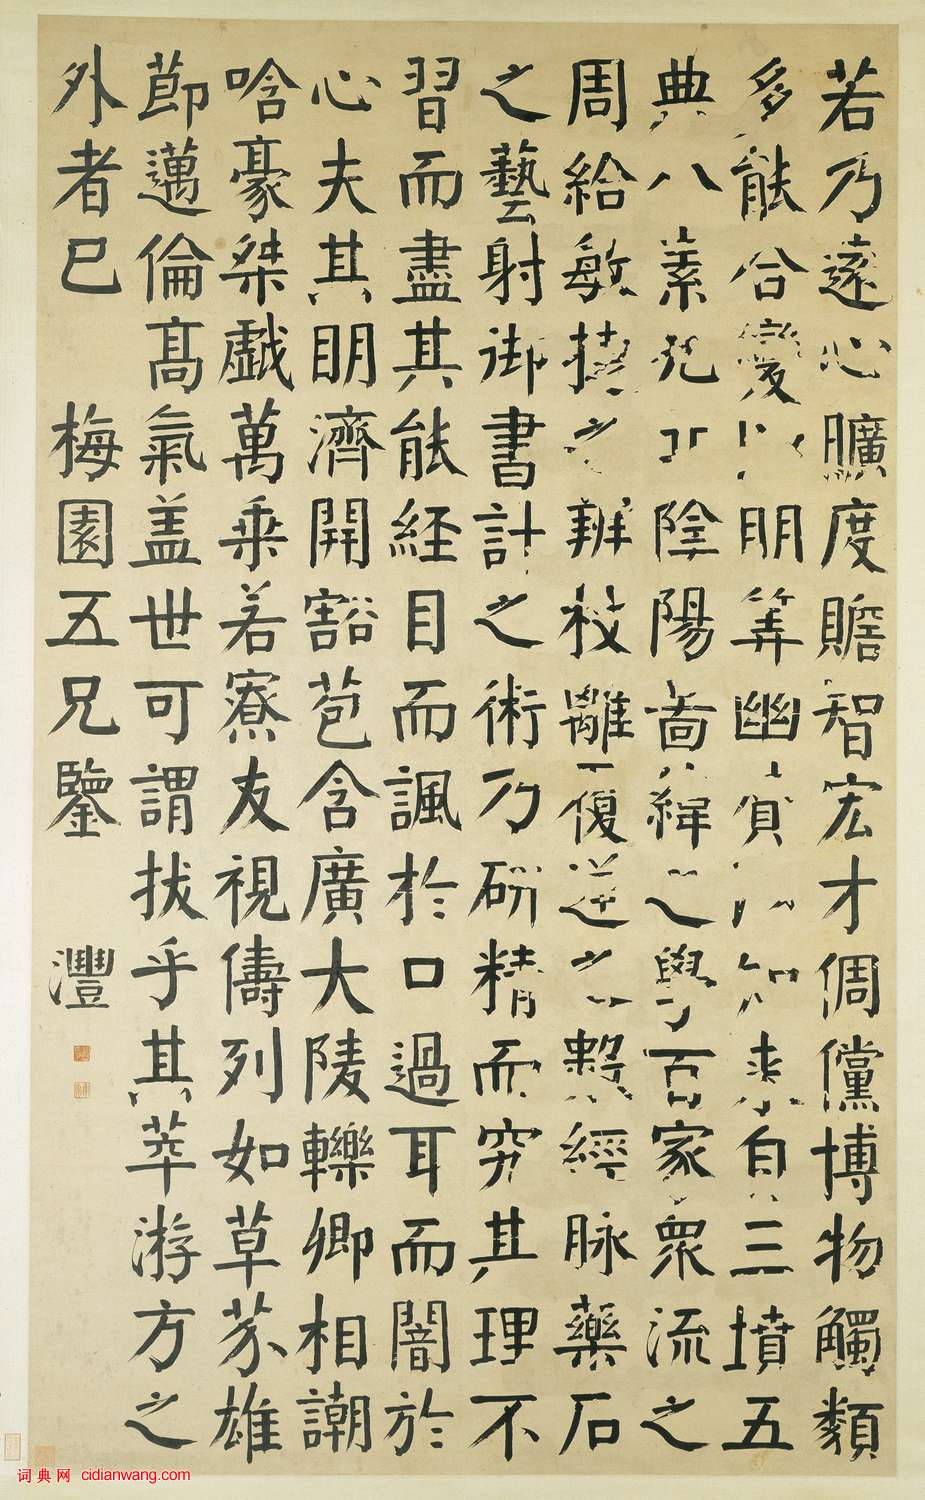 若乃遠心曠度贍智宏才倜儻博物觸類
多能合變以明筭幽贊以知來自三墳五
典八素九丘陰陽啚緯之學百家衆流之
周給敏捷之辨枝離覆逆之數經脉藥石
之藝射御書計之術乃研精而究其理不
習而盡其能経目而諷於口過耳而闇於
心夫其明濟開豁苞含廣大陵轢卿相謿
唅豪桀戯萬乗若寮友視儔列如草芥雄
節邁倫髙氣盖世可謂拔乎其萃游方之
外者已 梅園五兄鑒 灃
词典网 cidianwang.com